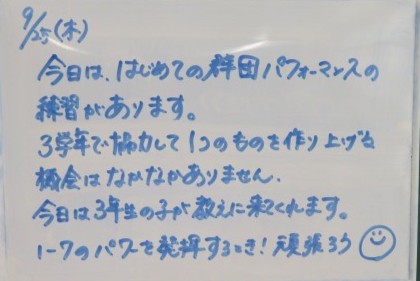 9/25(木)
今日は、はじめての群団パフォーマンスの
練習があります。
3学年で協力して1つのものを作り上げる
機会はなかなかありません。
今日は3年生の子が教えに来てくれます。
1-7のパワーを発揮するとき!頑張ろう